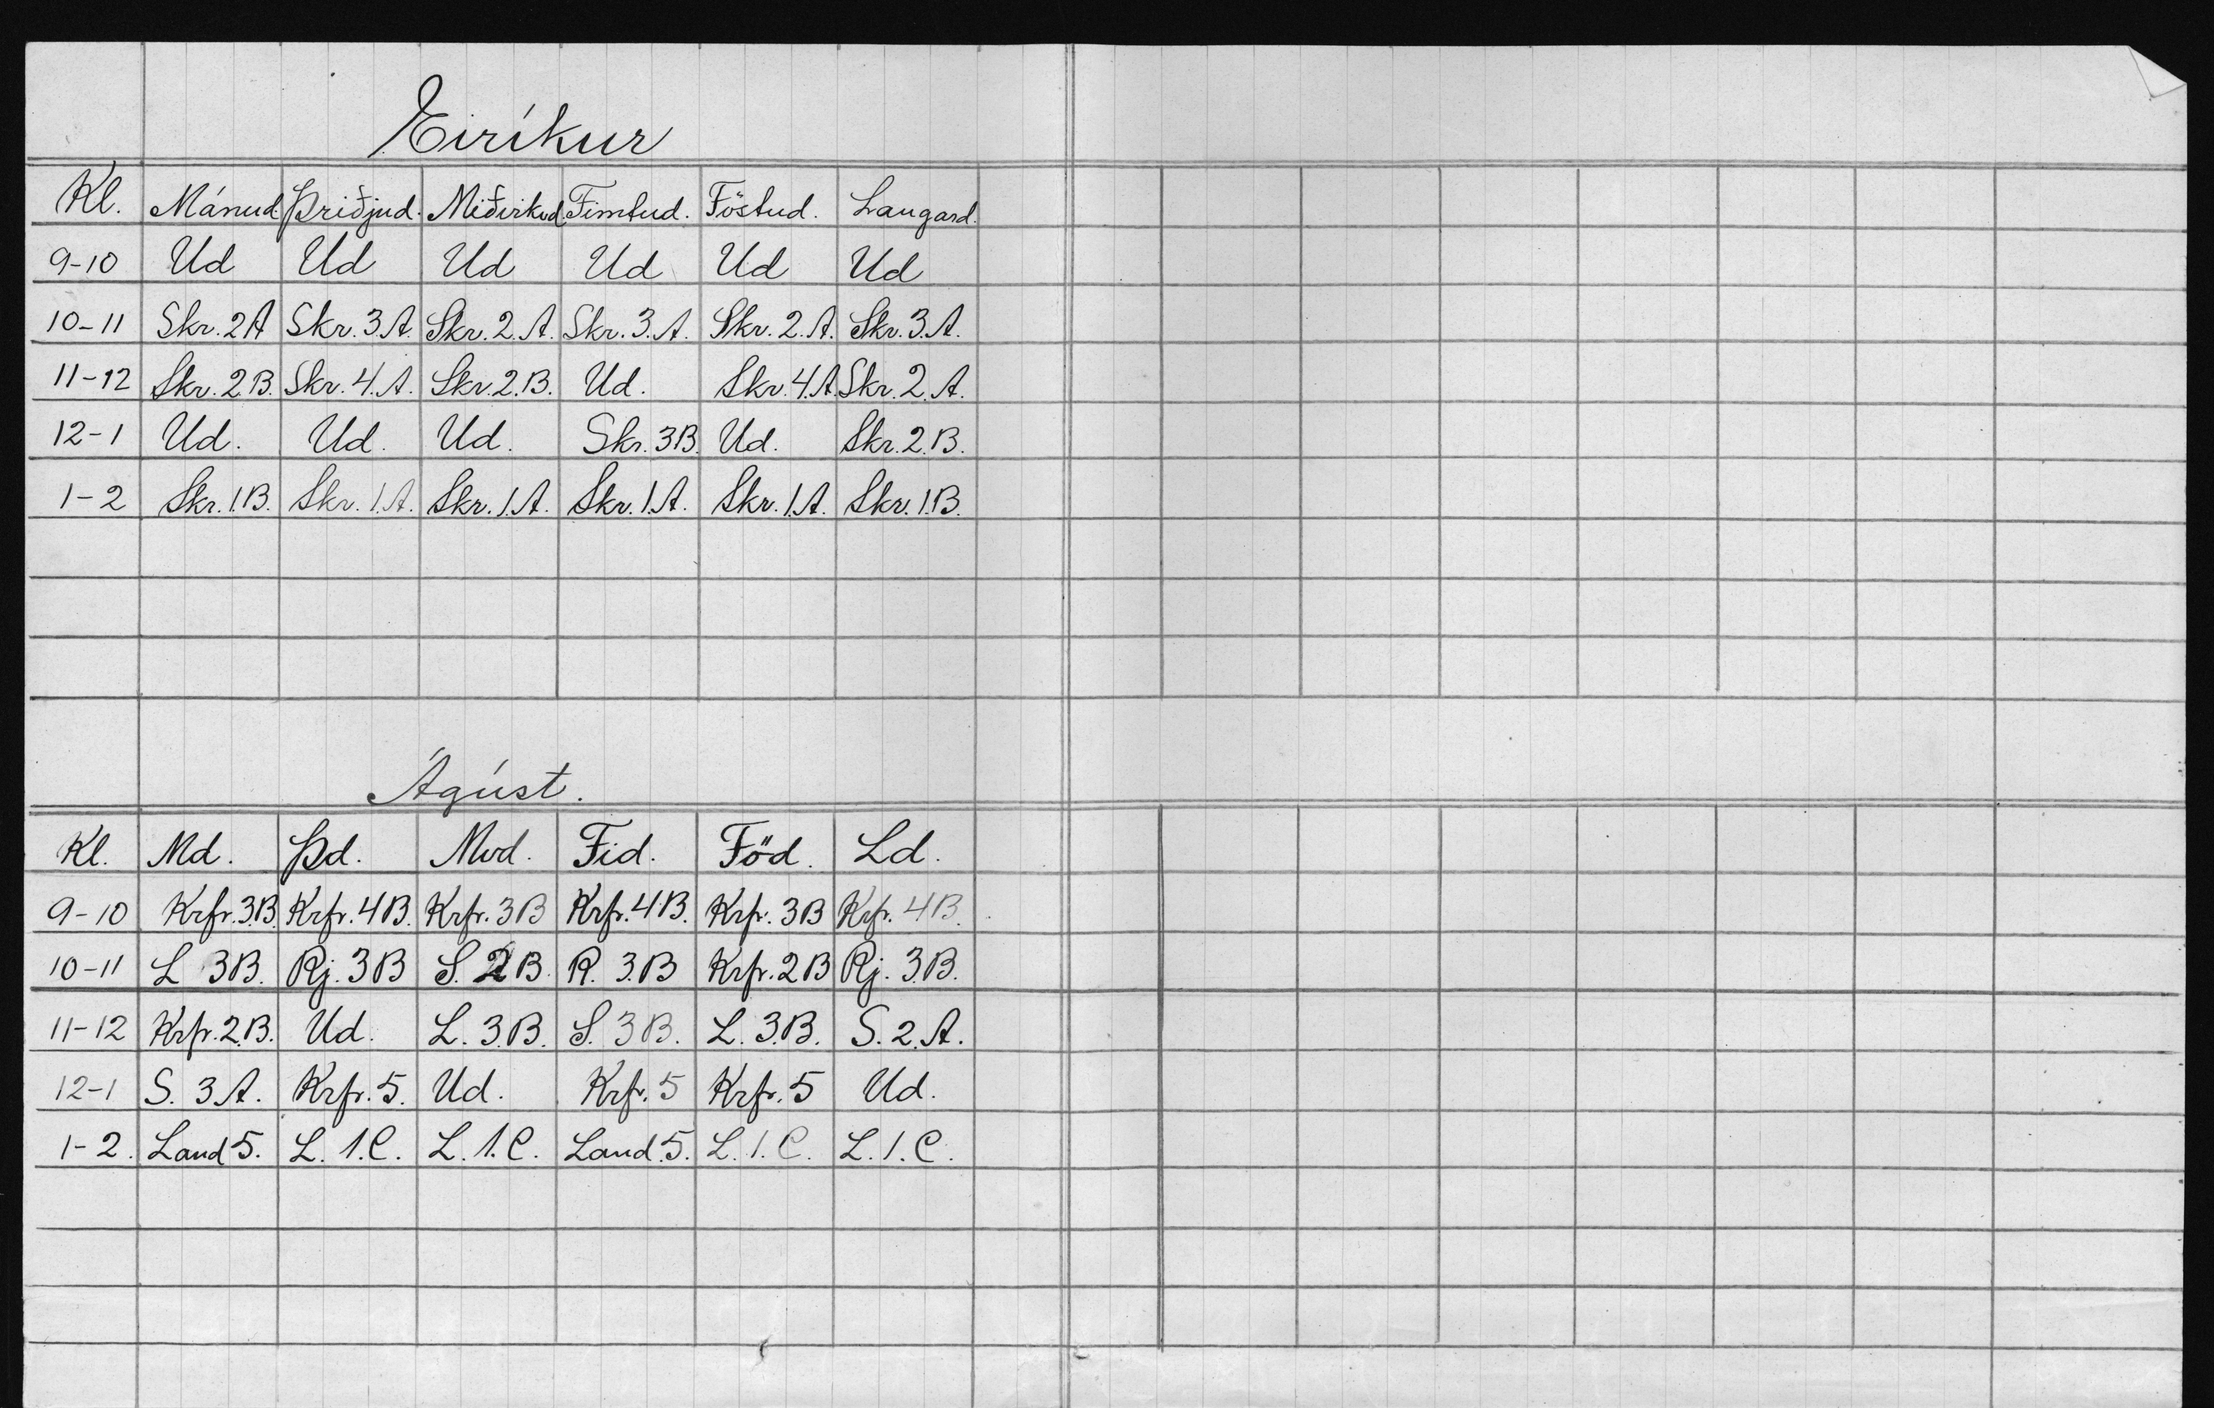 Eiríkur
Kl. Mánud. Þriðjud. Miðvikud. Fimtud. Föstud. Laugard.
9-10 Ud Ud Ud Ud Ud Ud
10-11 Skr. 2A Skr. 3.A. Skr. 2.A. Skr. 3.A. Skr. 2.A. Skr. 3.A.
11-12 Skr. 2.B. Skr. 4.A. Skr. 2.B. Ud. Skr. 4.A. Skr. 2.A.
12-1 Ud. Ud. Ud. Skr. 3B. Ud. Skr. 2.B.
1-2 Skr. 1.B. Skr. 1.A. Skr. 1.A. Skr. 1.A. Skr. 1.A. Skr. 1.B.
Ágúst.
Kl. Md. Þd. Mvd. Fid. Föd. Ld.
9-10 Krfr. 3B. Krfr. 4B. Krfr. 3B Krfr. 4B. Krfr. 3B Krfr. 4B.
10-11 L 3B. Rj. 3B S. 2B. R. 3.B Krfr. 2B Rj. 3.B.
11-12 Krfr. 2.B. Ud. L. 3.B. S. 3B. L. 3.B. S. 2.A.
12-1 S. 3A. Krfr. 5. Ud. Krfr. 5 Krfr. 5 Ud.
1-2. Land 5. L. 1.C. L. 1.C. Land. 5. L. 1.C. L. 1.C.